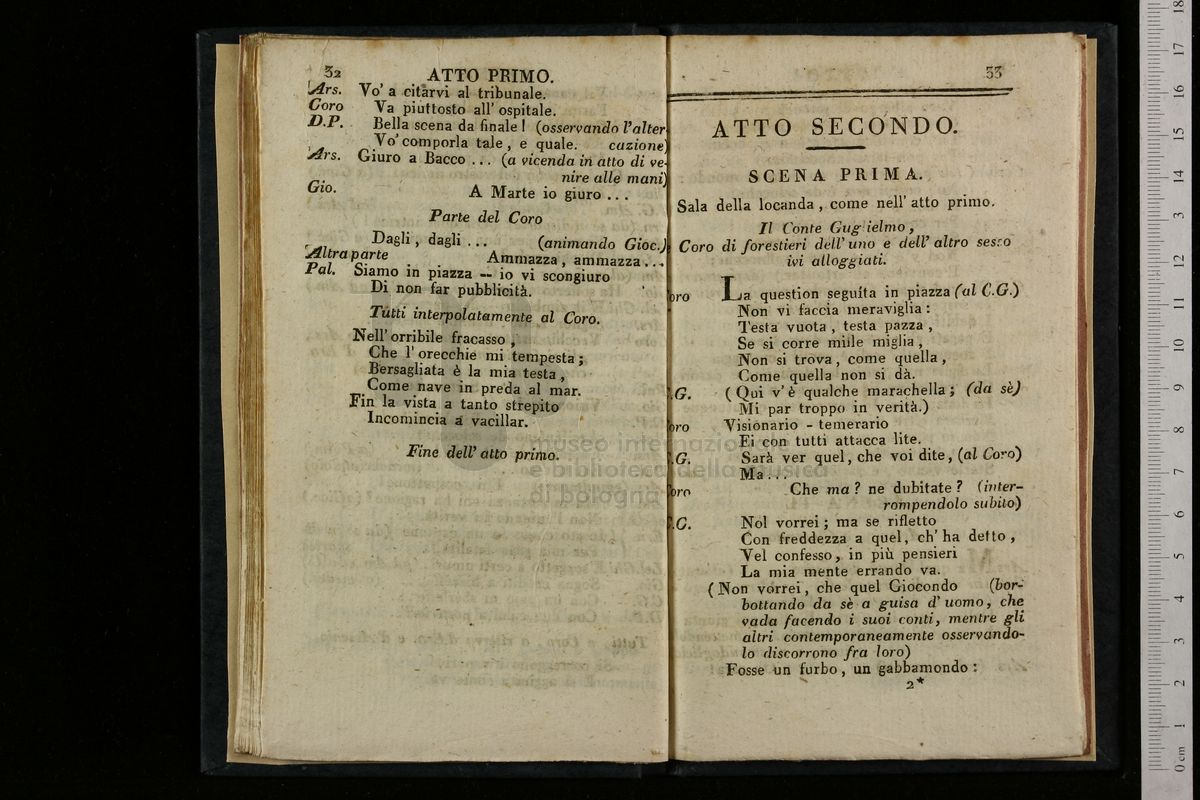 32 ATTO PRIMO.
Ars. Vo' a citarvi al tribunale.
Coro Va piuttosto all' ospitale.
D.P. Bella scena da finale! (osservando l'alter
Vo' comporla tale, e quale. cazione)
Ars. Giuro a Bacco ... (a vicenda in atto di ve-
nire alle mani)
Gio. A Marte io giuro ...
Parte del Coro
Dagli, dagli ... (animando Gioc.)
Altra parte Ammazza, ammazza...
Pal. Siamo in piazza — io vi scongiuro
Di non far pubblicità.
Tutti interpolatamente al Coro.
Nell' orribile fracasso,
Che l' orecchie mi tempesta;
Bersagliata è la mia testa,
Come nave in preda al mar.
Fin la vista a tanto strepito
Incomincia a vacillar.
Fine dell' atto primo.
33
ATTO SECONDO.
SCENA PRIMA.
Sala della locanda, come nell' atto primo.
Il Conte Guglielmo,
Coro di forestieri dell' uno e dell' altro sesso
ivi alloggiati.
oro La question seguita in piazza (al C.G.)
Non vi faccia meraviglia:
Testa vuota, testa pazza,
Se si corre mille miglia,
Non si trova, come quella,
Come quella non si dà.
.G. (Qui v' è qualche marachella; (da sè)
Mi par troppo in verità.)
oro Visionario - temerario
Ei con tutti attacca lite.
.G. Sarà ver quel, che voi dite, (al Coro)
Ma...
oro Che ma? ne dubitate? (inter-
rompendolo subito)
.G. Nol vorrei; ma se rifletto
Con freddezza a quel, ch' ha detto,
Vel confesso, in più pensieri
La mia mente errando va.
(Non vorrei, che quel Giocondo (bor-
bottando da sè a guisa d' uomo, che
vada facendo i suoi conti, mentre gli
altri contemporaneamente osservando-
lo discorrono fra loro)
Fosse un furbo, un gabbamondo:
2*
museo internazionale
e biblioteca della musica
di bologna
0 cm 1 2 3 4 5 6 7 8 9 10 11 12 13 14 15 16 17 18